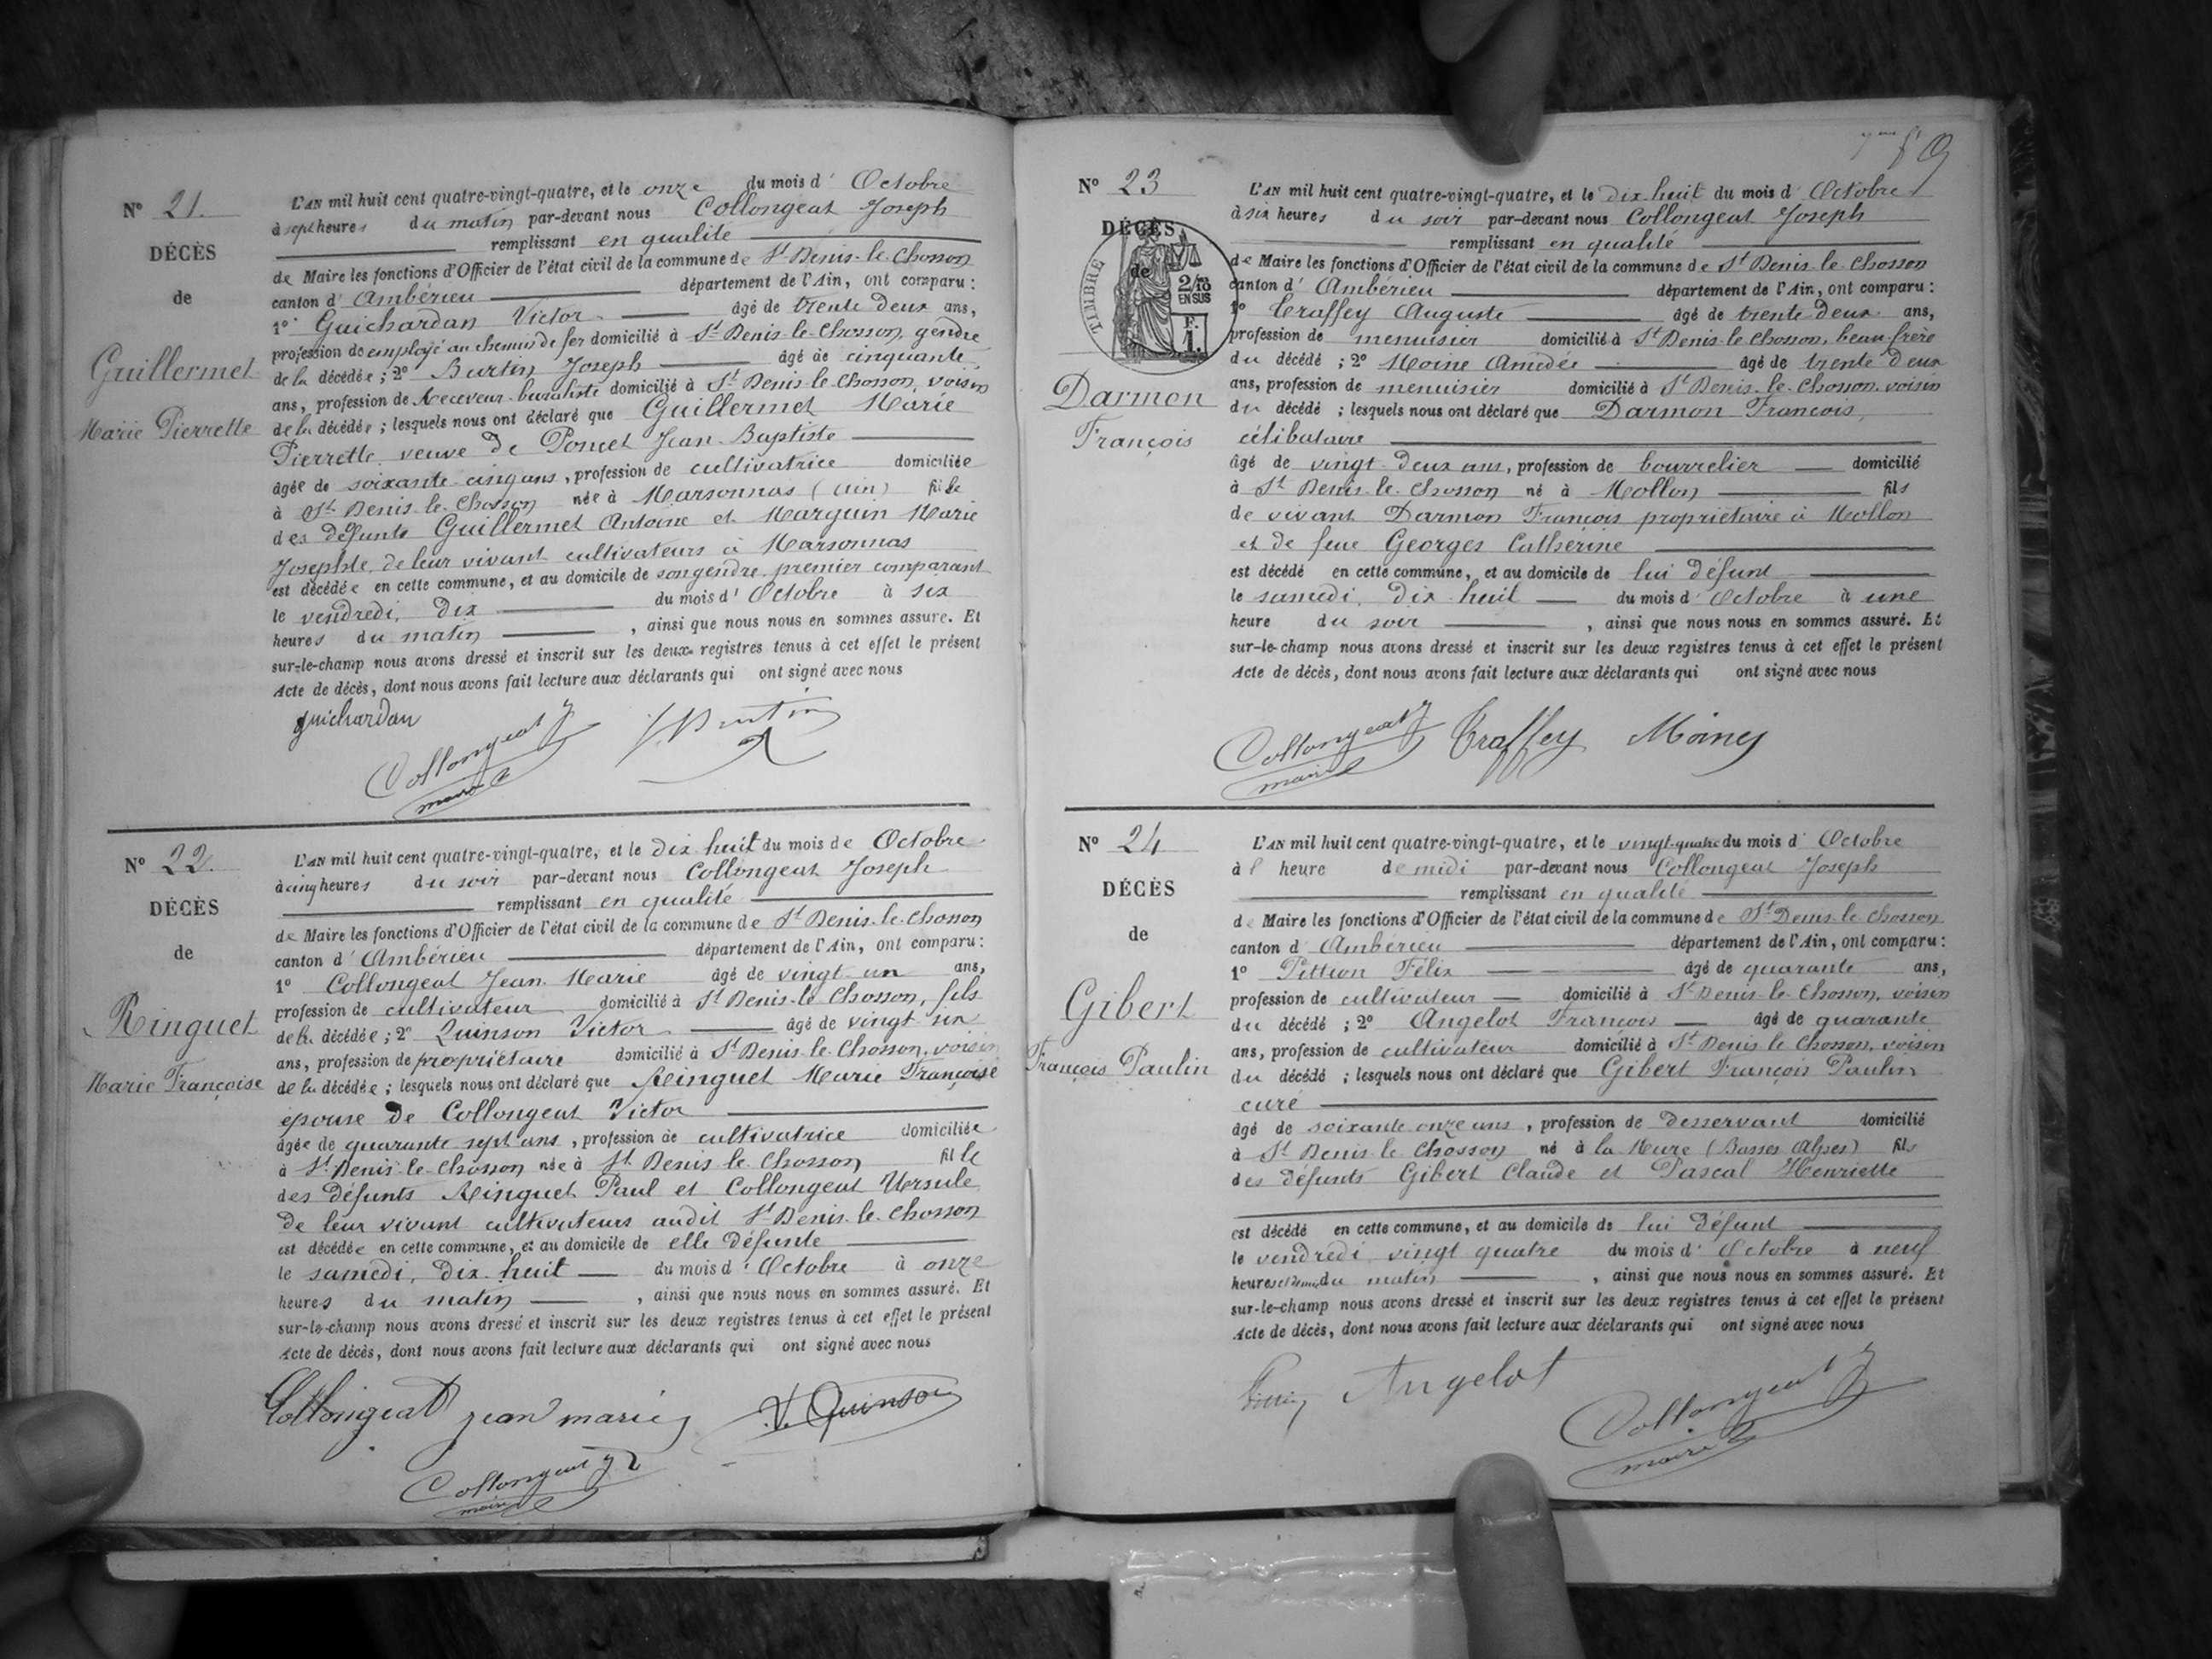 N° 21.
DÉCÈS
de
Guillermet
Marie Pierrette
L'AN mil huit cent quatre-vingt-quatre, et le onze du mois d' Octobre
à sept heures du matin par-devant nous Collongeat Joseph
remplissant en qualité
de Maire les fonctions d'Officier de l'état civil de la commune de St Denis-le-Chosson
canton d' Ambérieu département de l'Ain, ont comparu :
1° Guichardan Victor âgé de trente deux ans,
profession de employé au chemin de fer domicilié à St Denis-le-Chosson, gendre
de la décédée ; 2° Burtin Joseph âgé de cinquante
ans, profession de Receveur-buraliste domicilié à St Denis-le-Chosson, voisin
de la décédée ; lesquels nous ont déclaré que Guillermet Marie
Pierrette, veuve de Poncet Jean-Baptiste
âgée de soixante-cinq ans, profession de cultivatrice domiciliée
à St Denis-le-Chosson née à Marsonnas (Ain) fille
des défunts Guillermet Antoine et Marguin Marie
Josephte, de leur vivant cultivateurs à Marsonnas
est décédée en cette commune, et au domicile de son gendre, premier comparant
le vendredi, dix du mois d' Octobre à six
heures du matin, ainsi que nous nous en sommes assuré. Et
sur-le-champ nous avons dressé et inscrit sur les deux registres tenus à cet effet le présent
Acte de décès, dont nous avons fait lecture aux déclarants qui ont signé avec nous
guichardan
Collongeat J
maire
J. Burtin
N° 22.
DÉCÈS
de
Ringuet
Marie Françoise
L'AN mil huit cent quatre-vingt-quatre, et le dix huit du mois de Octobre
à cinq heures du soir par-devant nous Collongeat Joseph
remplissant en qualité
de Maire les fonctions d'Officier de l'état civil de la commune de St Denis-le-Chosson
canton d' Ambérieu département de l'Ain, ont comparu :
1° Collongeat Jean Marie âgé de vingt-un ans,
profession de cultivateur domicilié à St Denis-le Chosson, fils
de la décédée ; 2° Quinson Victor âgé de vingt six
ans, profession de propriétaire domicilié à St Denis-le-Chosson, voisin
de la décédée ; lesquels nous ont déclaré que Ringuet Marie Françoise
épouse de Collongeat Victor
âgée de quarante sept ans, profession de cultivatrice domiciliée
à St Denis-le-Chosson née à St Denis-le-Chosson fille
des défunts Ringuet Paul et Collongeat Ursule
de leur vivant cultivateurs audit St Denis-le-Chosson
est décédée en cette commune, et au domicile de elle défunte
le samedi, dix-huit du mois d' Octobre à onze
heures du matin, ainsi que nous nous en sommes assuré. Et
sur-le-champ nous avons dressé et inscrit sur les deux registres tenus à cet effet le présent
Acte de décès, dont nous avons fait lecture aux déclarants qui ont signé avec nous
Collongeat jean marie
V. Quinson
Collongeat J
maire
N° 23
DÉCÈS
de
TIMBRE
2/10
EN SUS
F.
1.
Darmon
François
L'AN mil huit cent quatre-vingt-quatre, et le dix-huit du mois d' Octobre
à six heures du soir par-devant nous Collongeat Joseph
remplissant en qualité
de Maire les fonctions d'Officier de l'état civil de la commune de St Denis-le-Chosson
canton d' Ambérieu département de l'Ain, ont comparu :
1° Traffey Auguste âgé de trente deux ans,
profession de menuisier domicilié à St Denis-le-Chosson, beau-frère
du décédé ; 2° Moine Amédée âgé de trente deux
ans, profession de menuisier domicilié à St Denis-le-Chosson, voisin
du décédé ; lesquels nous ont déclaré que Darmon François,
célibataire
âgé de vingt-deux ans, profession de bourrelier domicilié
à St Denis-le-Chosson né à Mollon fils
de vivant Darmon François propriétaire à Mollon
et de feue Georges Catherine
est décédé en cette commune, et au domicile de lui défunt
le samedi, dix-huit du mois d' Octobre à une
heure du soir, ainsi que nous nous en sommes assuré. Et
sur-le-champ nous avons dressé et inscrit sur les deux registres tenus à cet effet le présent
Acte de décès, dont nous avons fait lecture aux déclarants qui ont signé avec nous
Collongeat J
maire
Traffey
Moine
N° 24
DÉCÈS
de
Gibert
François Paulin
L'AN mil huit cent quatre-vingt-quatre, et le vingt-quatre du mois d' Octobre
à l' heure de midi par-devant nous Collongeat Joseph
remplissant en qualité
de Maire les fonctions d'Officier de l'état civil de la commune de St Denis-le-Chosson
canton d' Ambérieu département de l'Ain, ont comparu :
1° Pittion Félix âgé de quarante ans,
profession de cultivateur domicilié à St Denis-le-Chosson, voisin
du décédé ; 2° Angelot François âgé de quarante
ans, profession de cultivateur domicilié à St Denis le Chosson, voisin
du décédé ; lesquels nous ont déclaré que Gibert François Paulin
curé
âgé de soixante onze ans, profession de desservant domicilié
à St Denis le Chosson né à la Mure (Basses Alpes) fils
des défunts Gibert Claude et Pascal Henriette
est décédé en cette commune, et au domicile de lui défunt
le vendredi vingt quatre du mois d' Octobre à neuf
heures et demie du matin, ainsi que nous nous en sommes assuré. Et
sur-le-champ nous avons dressé et inscrit sur les deux registres tenus à cet effet le présent
Acte de décès, dont nous avons fait lecture aux déclarants qui ont signé avec nous
Angelot
Collongeat J
maire